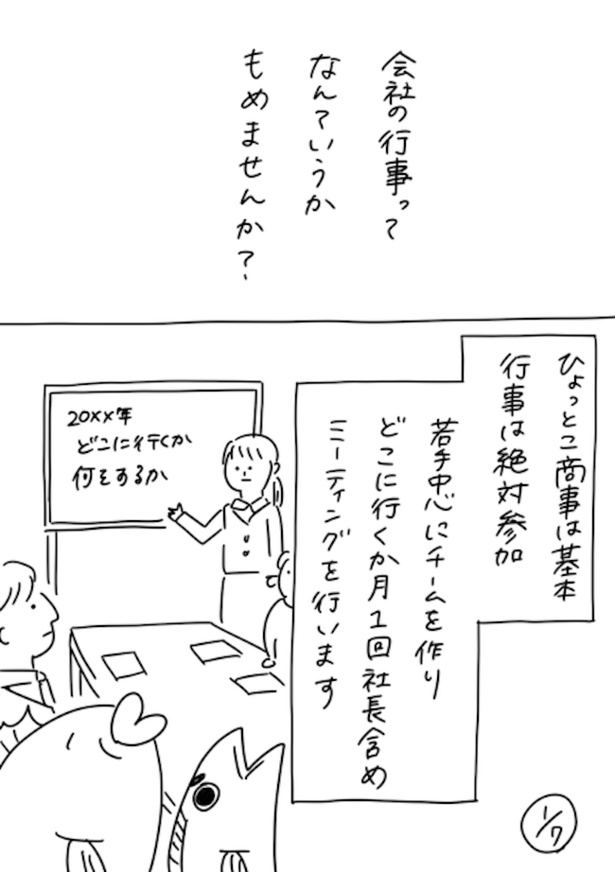 会社の行事って
なんていうか
もめませんか?
ひょっとこ商事は基本
行事は絶対参加
若手中心にチームを作り
どこに行くか月1回社長含め
ミーティングを行います
20××年
どこに行くか
何をするか
1/7